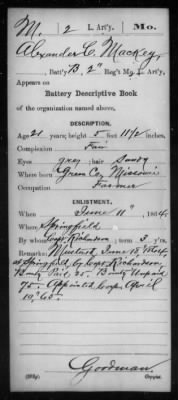 M. 2 L. Art'y. Mo.
Alexander C. Mackey,
Batt'y B, 2" Reg't Mo. L. Art'y,
Appears on
Battery Descriptive Book
of the organization named above.
DESCRIPTION.
Age 21 years; height 5 feet 11 1/2 inches.
Complexion Fair
Eyes grey; hair Sandy
Where born Green Co, Missouri
Occupation Farmer
ENLISTMENT.
When June 11", 1864.
Where Springfield
By whom Richardson; term 3 y'rs.
Remarks: Must'd June 18, 1864,
at Springfield by Capt Richardson
Bounty Paid 25. Bounty Unpaid
75. Appointed Corp. April
19, 65.
Goodman
Copyist.